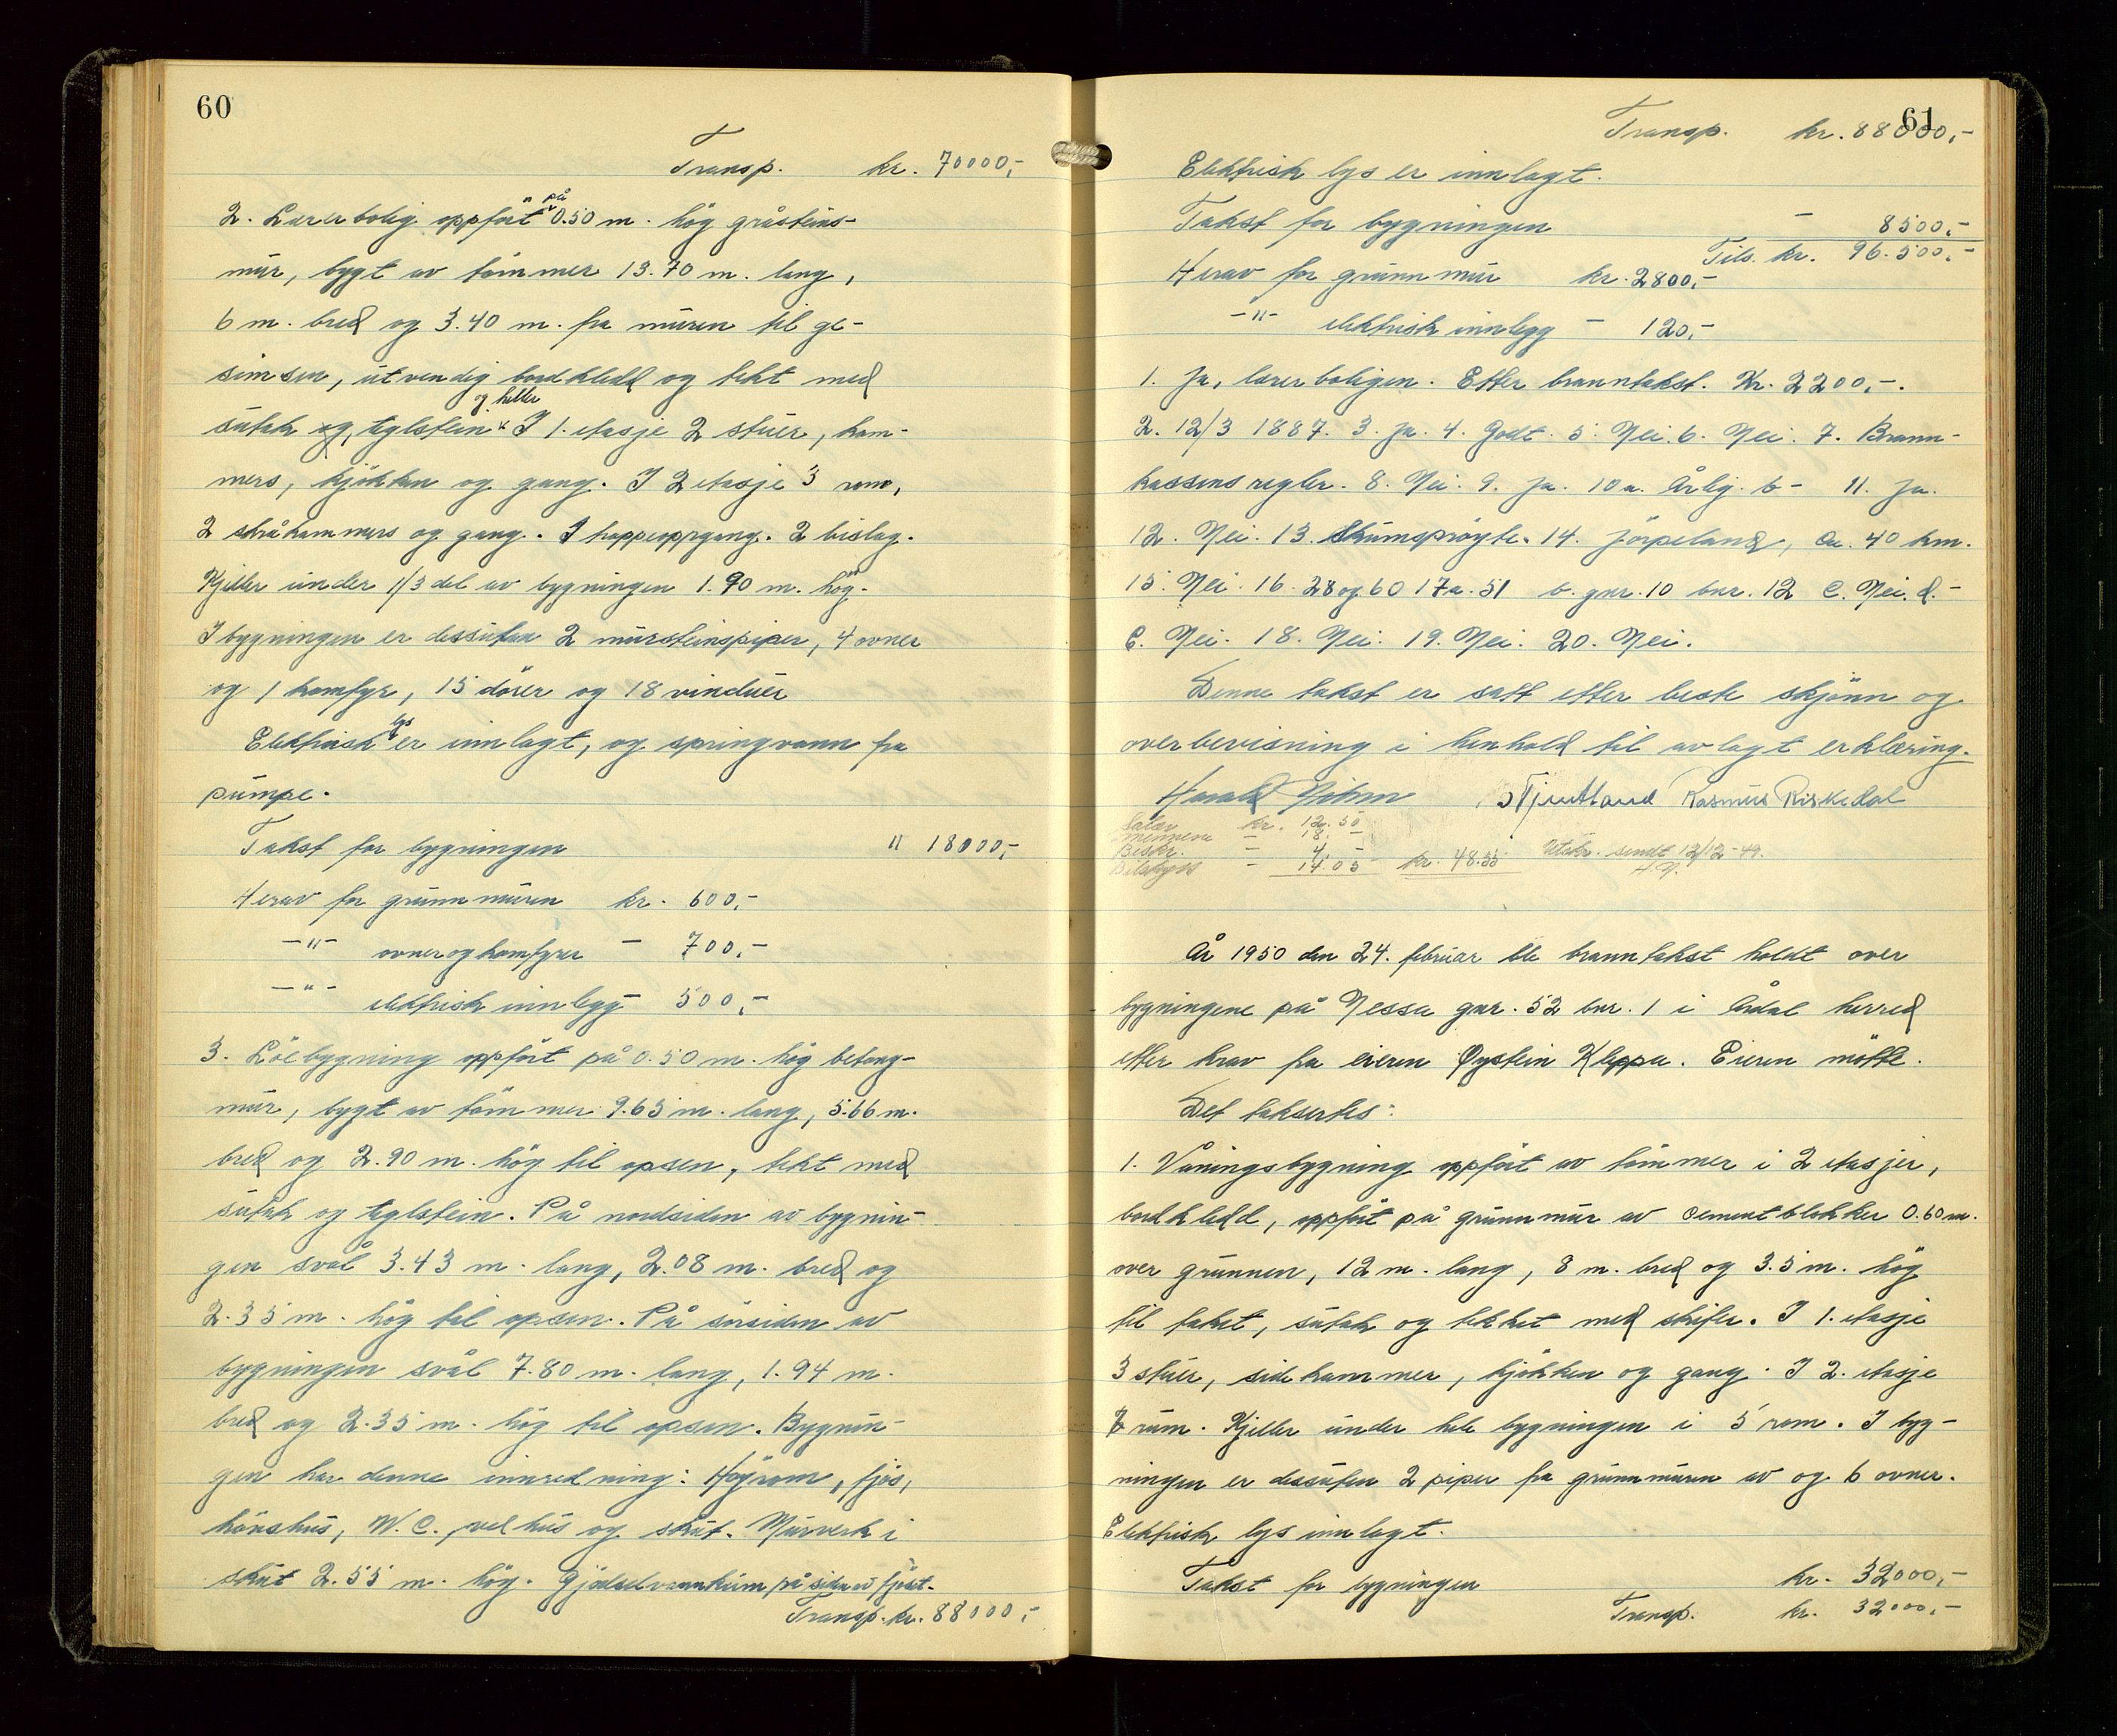 60
Transp. kr. 70000,-
2. Lærerbolig oppført på 0.50 m. høg gråsteins-
mur, bygt av tømmer 13.70 m. lang,
6 m. bred og 3.40 m. fra muren til ge-
simsen, utvendig bordkledd og tekt med
sutak og teglstein og heller. I 1. etasje 2 stuer, kam-
mers, kjøkken og gang. I 2 etasje 3 rom,
2 skråkammers og gang. I trappeoppgang. 2 bislag.
Kjeller under 1/3 del av bygningen 1.90 m. høg.
I bygningen er dessuten 2 mursteinspiper, 4 ovner
og 1 komfyr, 15 dører og 18 vinduer
Elektrisk lys er innlagt, og springvann fra
pumpe.
Takst for bygningen " 18000,-
Herav for grunnmuren kr. 600,-
-"- ovner og komfyrer - 700,-
-"- elektrisk innlegg - 500,-
3. Löebygning oppført på 0.50 m. høg betong-
mur, bygt av tømmer 9.65 m. lang, 5.66 m.
bred og 2.90 m. høg til opsen, tekt med
sutak og teglstein. På nordsiden av bygnin-
gen svål 3.43 m. lang, 2.08 m. bred og
2.35 m. høg til opsen. På sørsiden av
bygningen svål 7.80 m. lang, 1.94 m.
bred og 2.35 m. høg til opsen. Bygnin-
gen har denne innredning: Høyrom, fjøs,
hønshus, W.C., vedhus og skut. Murverk i
skut 2.55 m. høg. Gjødselvannkum på siden av fjøset.
Transp. kr. 88000,-
61
Transp. kr. 88000,-
Elektrisk lys er innlagt.
Takst for bygningen - 8500,-
Tils. kr. 96.500,-
Herav for grunnmur kr. 2800,-
-"- elektrisk innlegg - 120,-
1. Ja, lærerboligen. Etter branntakst. Kr. 2200,-.
2. 12/3 1887. 3. Ja. 4. Godt. 5. Nei. 6. Nei. 7. Brann-
kassens regler. 8. Nei. 9. Ja. 10 a. Årlig. b - 11. Ja.
12. Nei. 13. Skumsprøyte. 14. Jørpeland, ca. 40 km.
15. Nei. 16. 28 og 60 17 a. 51 b. gnr. 10 bnr. 12 C. Nei. d. -
e. Nei. 18. Nei. 19. Nei. 20. Nei.
Denne takst er satt etter beste skjønn og
overbevisning i henhold til avlagt erklæring.
Harald Rasmus Riskedal
Salær kr. 12.50
mennene - 18. -
Beskr. - 4. -
Bilskyss - 14.05 kr. 48.55 Utskr. sendt 12/12-49.
H.N.
År 1950 den 24. februar ble branntakst holdt over
bygningene på Nessa gnr. 52 bnr. 1 i Årdal herred
etter krav fra eieren Øystein Kleppa. Eieren møtte.
Det taksertes:
1. Våningsbygning oppført av tømmer i 2 etasjer,
bordkledd, oppført på grunnmur av cementblokker 0.60 m.
over grunnen, 12 m. lang, 8 m. bred og 3.5 m. høg
til taket, sutak og tekket med skifer. I 1. etasje
3 stuer, sidekammer, kjøkken og gang. I 2. etasje
rum. Kjeller under hele bygningen i 5 rom. I byg-
ningen er dessuten 2 piper fra grunnmuren av og 6 ovner.
Elektrisk lys innlagt.
Takst for bygningen kr. 32000,-
Transp. kr. 32000,-